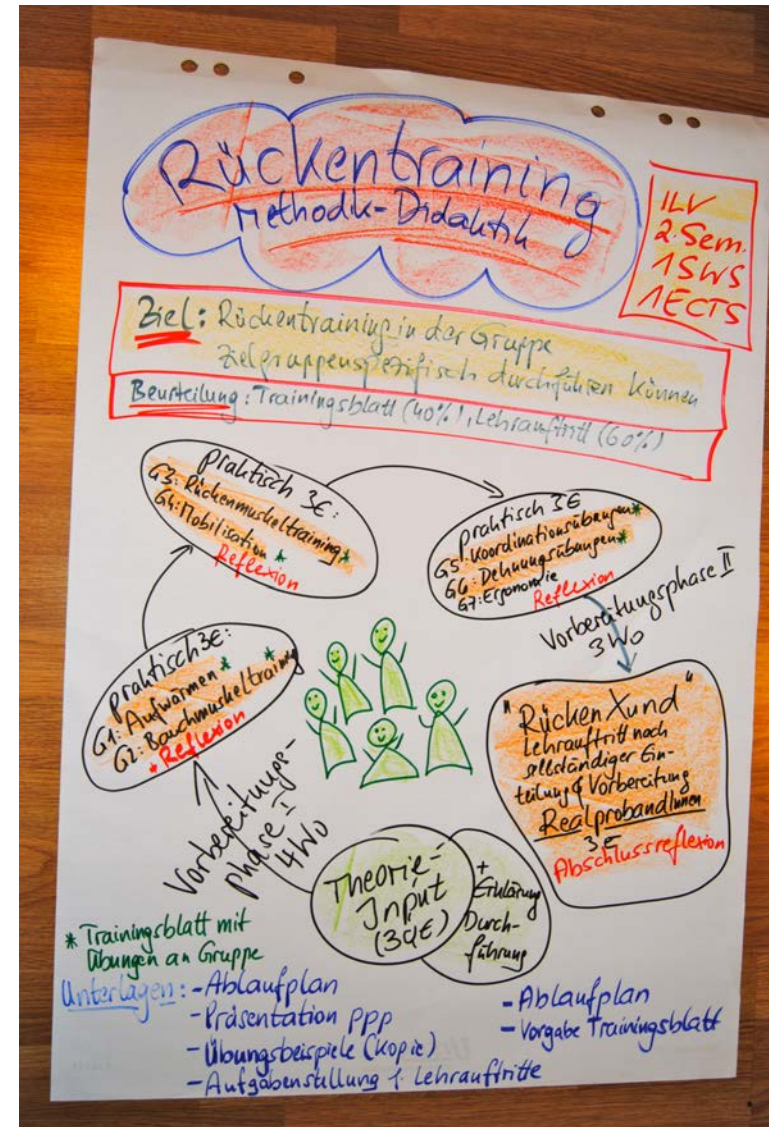 Rückentraining
Methodik-Didaktik
ILV
2. Sem.
1 SWS
1 ECTS
Ziel: Rückentraining in der Gruppe
zielgruppenspezifisch durchführen können
Beurteilung: Trainingsblatt (40%), Lehrauftritt (60%)
praktisch 3€:
G3: Rückenmuskeltraining*
G4: Mobilisation *
Reflexion
praktisch 3€
G5: Koordinationsübungen*
G6: Dehnungsübungen*
G7: Ergonomie
Reflexion
Vorbereitungsphase II
3 Wo
praktisch 3€:
G1: Aufwärmen *
G2: Bauchmuskeltraining *
* Reflexion
"RückenXund"
Lehrauftritt nach
selbständiger Ein-
teilung & Vorbereitung
RealprobandInnen
3€
Abschlussreflexion
Vorbereitungs-
phase I
4 Wo
Theorie-
Input
(3UE)
+
Erklärung
Durch-
führung
* Trainingsblatt mit
Übungen an Gruppe
Unterlagen: - Ablaufplan
- Präsentation ppp
- Übungsbeispiele (Kopie)
- Aufgabenstellung f. Lehrauftritte
- Ablaufplan
- Vorgabe Trainingsblatt